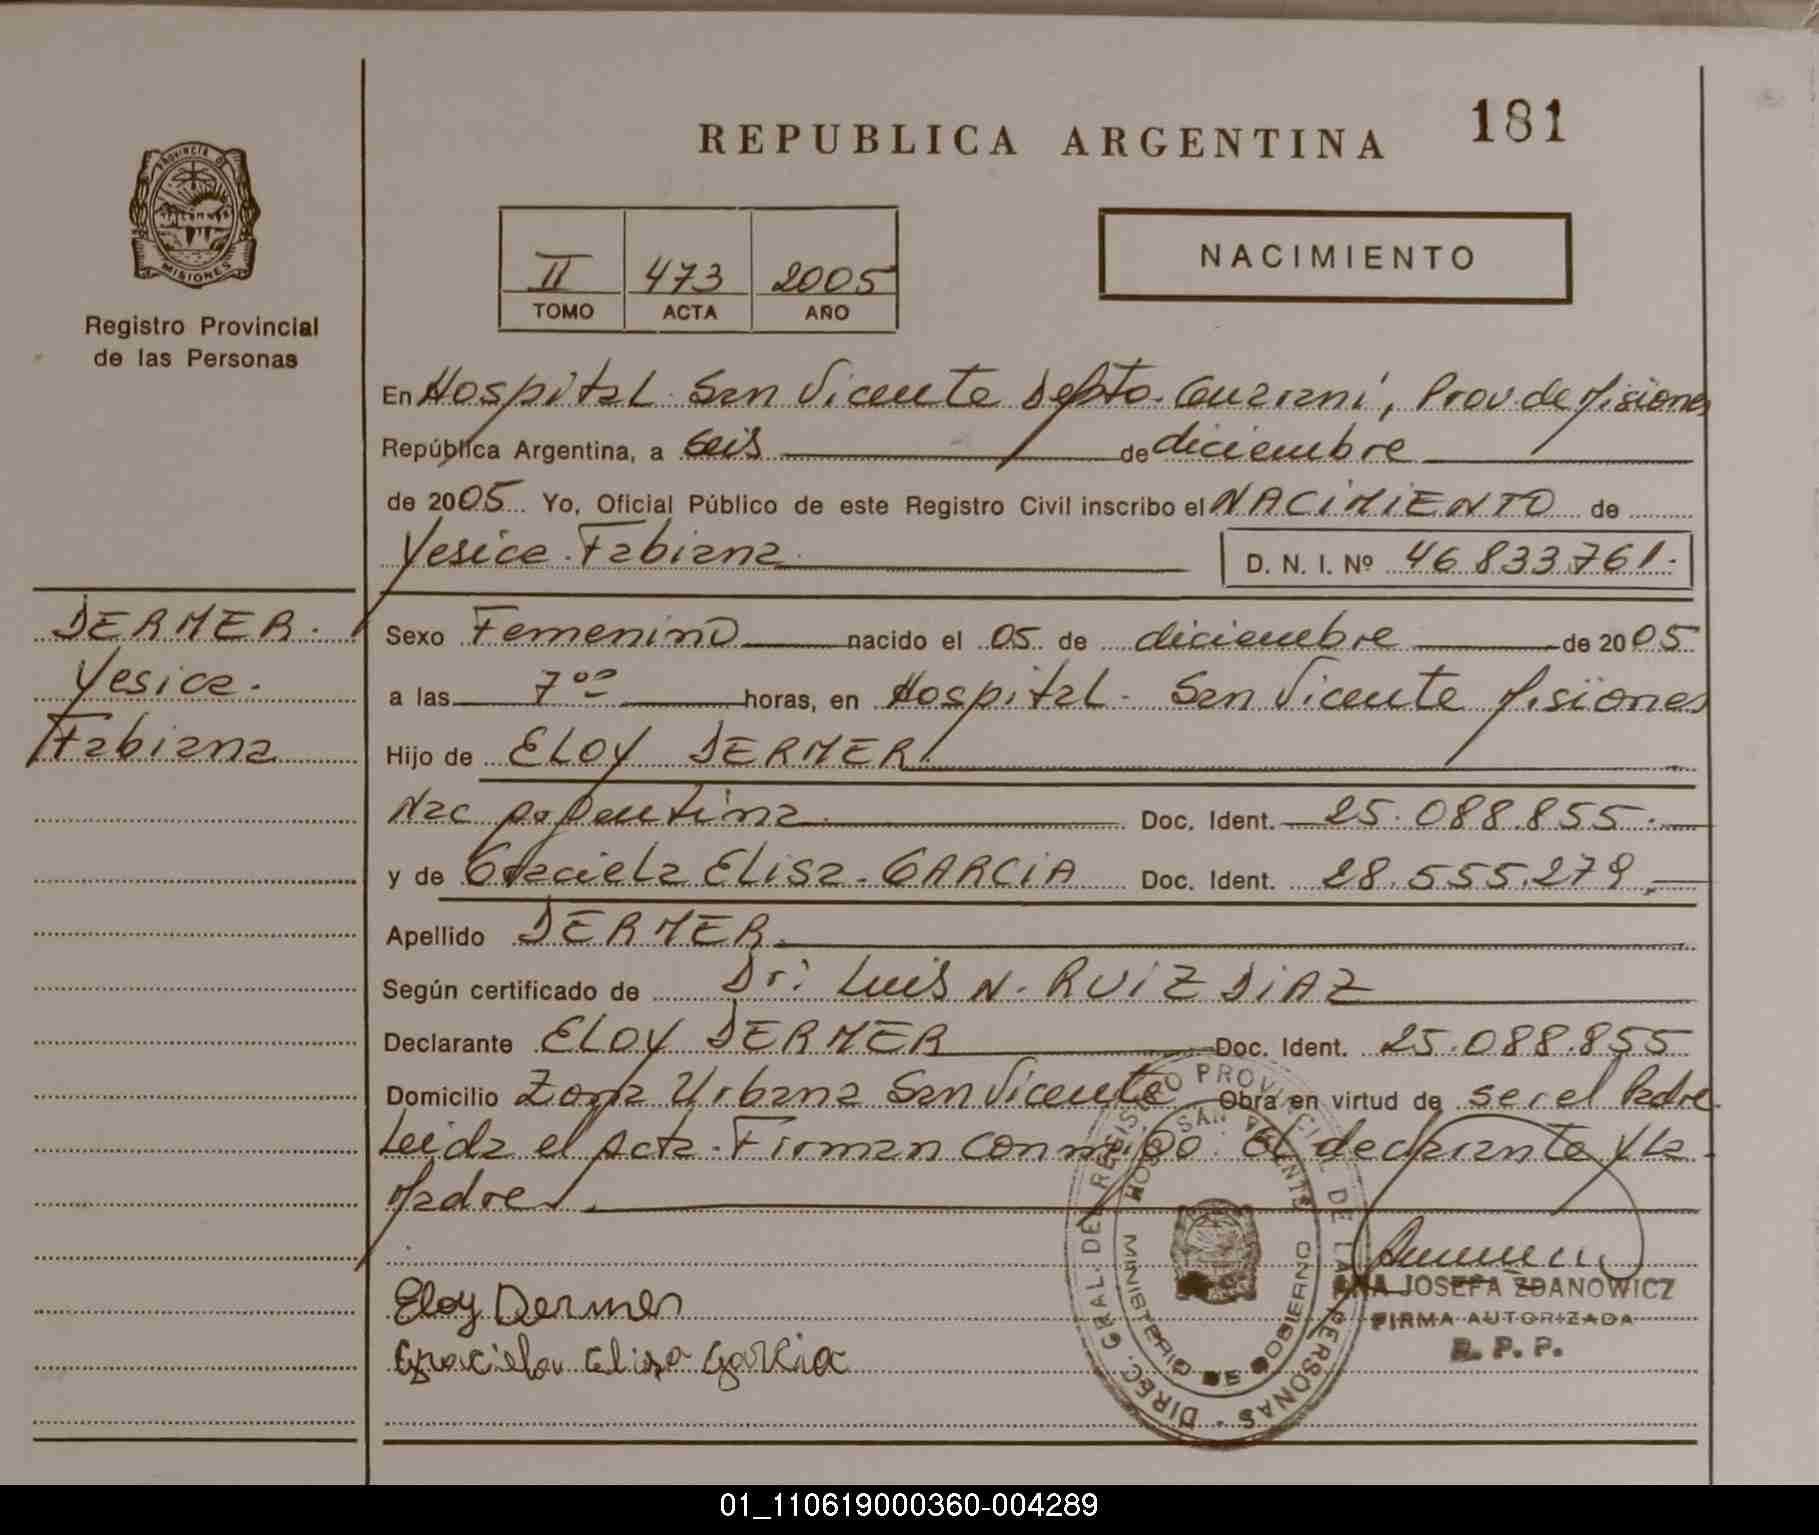 REPUBLICA ARGENTINA
181
PROVINCIA D
MISIONES
Registro Provincial
de las Personas
II 473 2005
TOMO ACTA AÑO
NACIMIENTO
En Hospital San Vicente Depto. Guaraní, Prov. de Misiones
República Argentina, a seis de diciembre
de 2005 Yo, Oficial Público de este Registro Civil inscribo el NACIMIENTO de
Yesica Fabiana
D. N. I. Nº 46.833.761.
DERMER.
Yesica.
Fabiana
Sexo Femenino nacido el 05 de diciembre de 2005
a las 7 00 horas, en Hospital San Vicente Misiones
Hijo de ELOY DERMER
Nac argentina Doc. Ident. 25.088.855.
y de Graciela Elisa GARCIA Doc. Ident. 28.555.279.
Apellido DERMER
Según certificado de Dr: Luis N. RUIZ DIAZ
Declarante ELOY DERMER Doc. Ident. 25.088.855
Domicilio Zona Urbana San Vicente Obra en virtud de ser el Padre
Leida el Acta. Firman conmigo el declarante y la
Madre
Eloy Dermer
Graciela Elisa Garcia
DIREC. GRAL. DEL REGISTRO PROVINCIAL DE LAS PERSONAS
HOSP. SAN VICENTE
MINISTERIO DE GOBIERNO
ANA JOSEFA ZDANOWICZ
FIRMA AUTORIZADA
R. P. P.
01_110619000360-004289